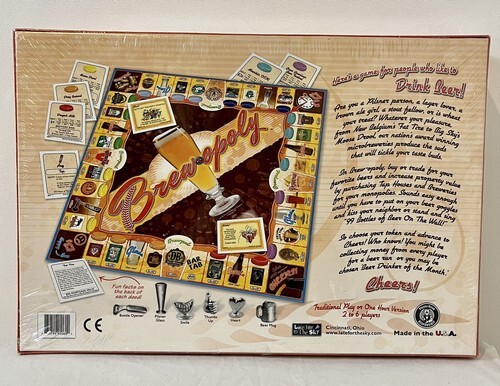 Here's a game for people who like to
Drink Beer!
Are you a Pilsner person, a lager lover, a
brown ale girl, a stout fellow, or is wheat
your treat? Whatever your pleasure,
from New Belgium's Fat Tire to Big Sky's
Moose Drool, our nation's award winning
microbreweries produce the suds
that will tickle your taste buds.
In Brew-opoly, buy or trade for your
favorite beers and increase property value
by purchasing Tap Houses and Breweries
for your monopolies. Sounds easy enough
until you have to put on your beer goggles
and kiss your neighbor or stand and sing
"99 Bottles of Beer On The Wall!"
So choose your token and advance to
Cheers! Who knows? You might be
collecting money from every player
for a beer run or you may be
chosen Beer Drinker of the Month.
Cheers!
Traditional Play or One Hour Version
2 to 6 players
Brew-opoly
Fun facts on
the back of
each deed!
Bottle Opener
Pilsner
Glass
Smile
Thumbs
Up
Heart
Beer Mug
CE
Late for
the Sky
Cincinnati, Ohio
www.lateforthesky.com
Made in the U.S.A.